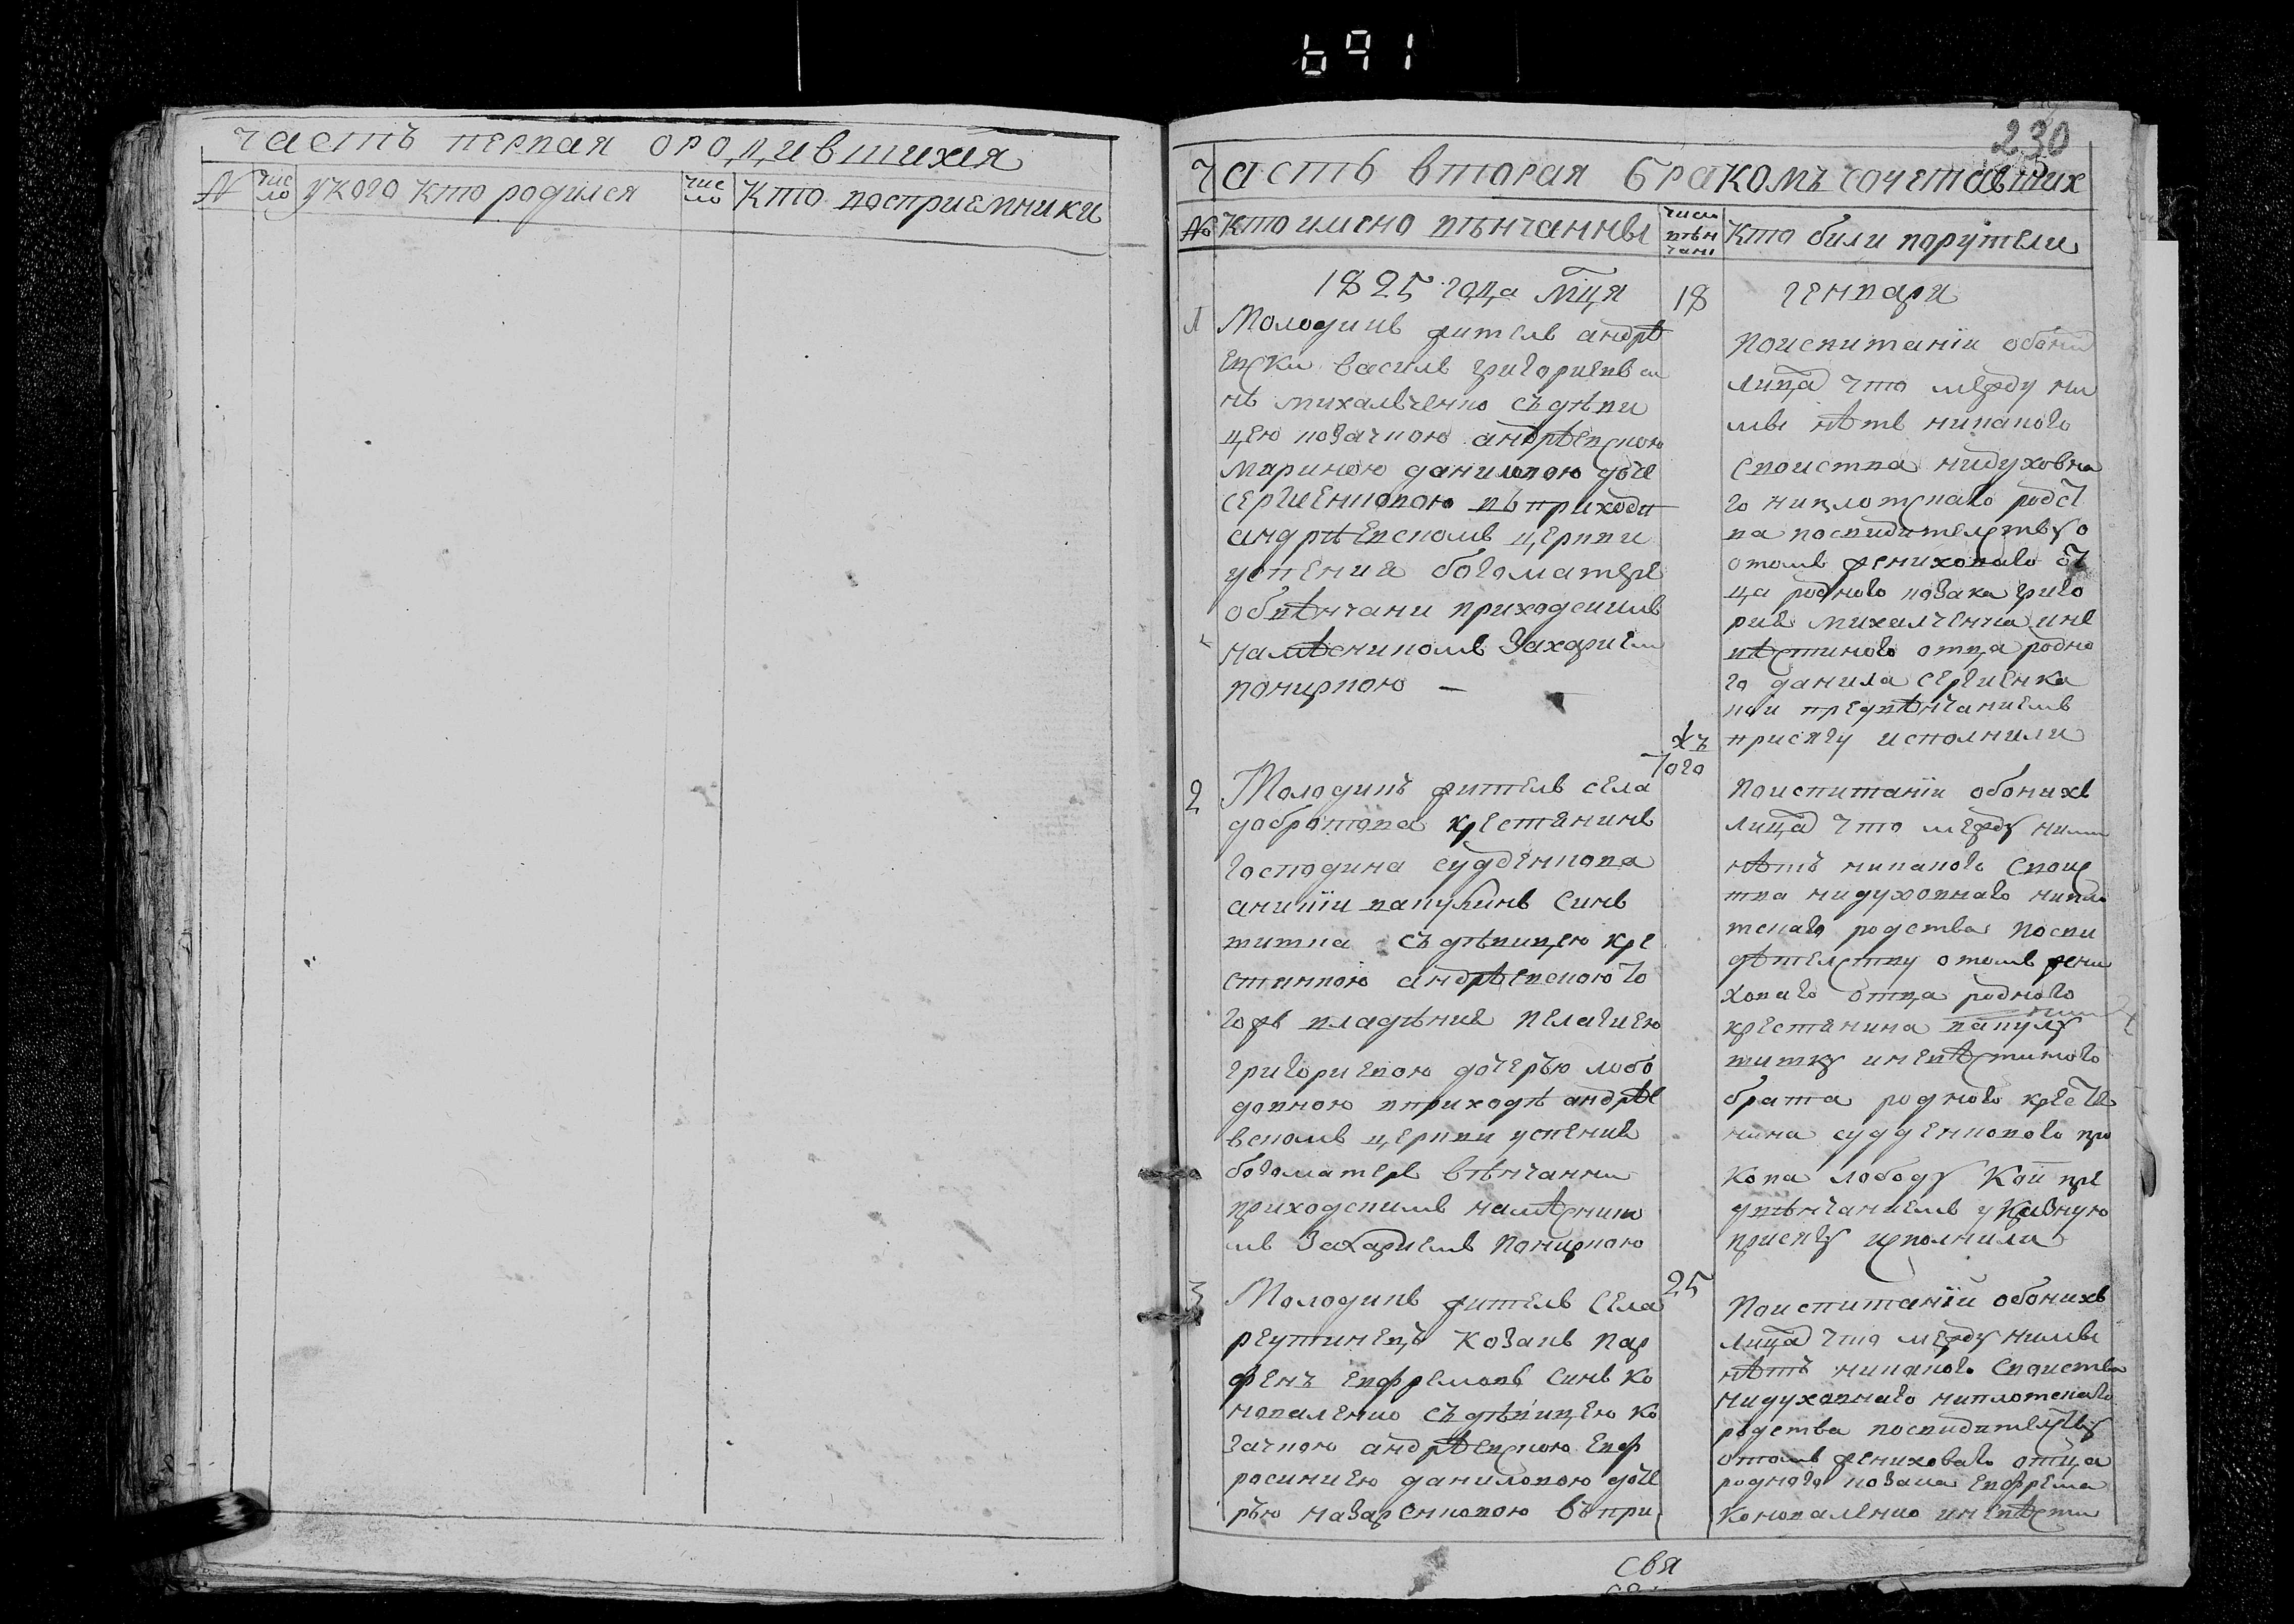 691
часть первая ородившихся
№ чис
ло
у кого кто родился
чис
ло
Кто восприемники
230
часть вторая бракомъ сочетавших
№ кто имено вѣнчанны
числ
вѣн
чані
Кто били поручтели
1825 года мца
18
генвари
1
Молодикъ житель андрѣ
евски василь григориевъ си
нъ михалченко съ дѣви
цею козачкою андрѣевскою
мариною даниловою доче
сергиенковою въ приходи
андрѣевскомъ церкви
успения богоматере
обвѣнчани приходскимъ
намѣсникомъ Захарием
Поиспитаніи обоихъ
лицъ что между ни
мы нѣтъ никакого
своиства нидуховна
го ниплотскаго родст
ва посвидителству о
отомъ женихового от
ца родного козака григо
рия михалченка ине
вѣстиного отца родно
го данила сергиенка
кои предвѣнчаниемъ
присягу исполнили
2
Того
Молодикъ житель села
добротова крестянинъ
господина судденкова
вакулинъ синъ
титка съ дѣвицею кре
стянкою андрѣевскою то
гожъ владѣния пелагиею
григориевою дочерью лобо
довною вприходѣ андрѣе
вскомъ церкви успения
богоматере вѣнчанни
приходскимъ намѣснико
мъ Захариемъ
Поиспитаніи обоихъ
лицъ что между ними
нѣтъ никакого своис
тва нидуховнаго нипло
тскаго родства посви
дѣтелству отомъ жени
хового отца родного
крестянина вакулу
титку иневѣстиного
брата родного крестя
нина судденкового про
копа лободу Кои пре
двѣнчаниемъ
присягу исполнили
3
25
Молодикъ житель села
реутинецъ козакъ пар
фенъ евфремовъ синъ ко
новаленко съ дѣвицею ко
зачкою андрѣевскою евф
росиниею даниловою доче
рью назаренковою въ при
Поиспитаніи обоихъ
лицъ что между нимы
нѣтъ никакого своиства
нидуховнаго ниплотскаго
родства посвидителству
отомъ женихового отца
родного козака евфрема
коноваленко иневѣсти
свя